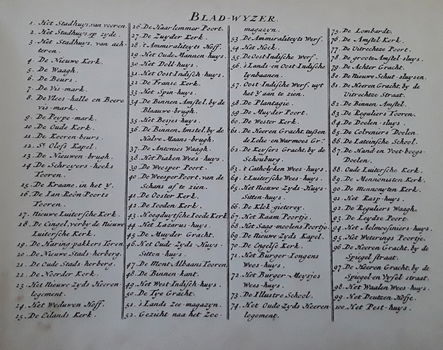 BLAD-WYZER.
1. Het Stadhuys, van vooren.
2. Het Stadhuys op zyde.
3. Het Stadhuys, van ach-
teren.
4. De Nieuwe Kerk.
5. De Waagh.
6. De Beurs.
7. De Vis-mark.
8. De Vlees-halle en Beere
vis-mark.
9. De Poype-mark.
10. De Oude Kerk.
11. De Koeren-beurs.
12. St Olofs Kapel.
13. De Nieuwen-brugh.
14. De Schreyers-hoeks
Tooren.
15. De Kraane, in het Y.
16. De Jan Roon Poorts
Tooren.
17. Nieuwe Luitersche Kerk.
18. De Cingel, verbij de Nieuwe
Luitersche Kerk.
19. De Haring-pakkers Toren.
20. De Nieuwe Stads herberg.
21. De Oude Stads herberg.
22. De Noorder Kerk.
23. Het Nieuwe Zyds Heeren
logement.
24. Het Weduwen Hoff.
25. De Eilands Kerk.
26. De Haarlemmer Poort.
27. De Zuyder Kerk.
28. 't Ammiraliteyts Hoff.
29. Het Oude Mannen-huys.
30. Het Dolhuys.
31. Het Oost Indisch-huys.
32. De Franse Kerk.
33. Het Spin-huys.
34. De Binnen Amstel, by de
Blaauwe-brugh.
35. Het Besjes-huys.
36. De Binnen, Amstel by de
Halve-Maans-brugh.
37. De Antonies Waagh.
38. Het Diaken Wees-huys.
39. De Weesper Poort.
40. De Weesper Poort, van de
Schans af te zien.
41. De Ooster Kerk.
42. De Jooden Kerk.
43. Hoogduytsche Joode Kerk.
44. Het Lazarus-huys.
45. De Muyder Gracht.
46. Het Oude Zyds Huys-
Sitten-huys.
47. De Mont Albaans Tooren.
48. De Binnen kant.
49. Het West-Indisch-huys.
50. De Tye Gracht.
51. 't Lands Zee-magazyn.
52. Gezicht naa het Zee-
magazyn.
53. De Ammiraliteyts Werf.
54. Het Hock.
55. De Oost-Indische Werf.
56. 's Lands en Oost-Indische
Lynbaanen.
57. Oost-Indische Werf, uyt
het Y aan te zien.
58. De Plantagie.
59. De Muyder Poort.
60. De Wester Kerk.
61. De Heeren Gracht, tussen
de Lelie- en Warmoes Gr:
62. De Keysers Gracht, by de
Schouburg.
63. 't Catholyken Wees-huys.
64. 't Luitersche Wees-huys.
65. Het Nieuwe Zyds Huys-
Sitten-huys.
66. De Klok-gietery.
67. Het Raam Poortje.
68. Het Zaag-moolens Poortje.
69. De Nieuwe Zyds Kapel.
70. De Engelse Kerk.
71. Het Burger Jongens
Wees-huys.
72. Het Burger Meysjes
Wees-huys.
73. De Illustre School.
74. Het Oude Zyds Heeren
logement.
75. De Lombardt.
76. De Amstel Kerk.
77. De Utrechtse Poort.
78. De groote Amstel-sluys.
79. De Achter Gracht.
80. De Nieuwe Schut-sluysen.
81. De Heeren Gracht by de
Utrechtse Straat.
82. De Binnen Amstel.
83. De Reguliers Tooren.
84. De Doelen-sluys.
85. De Coloveniers Doelen.
86. De Lateinsche School.
87. De Hand en Voet-boogs-
Doelen.
88. Oude Luitersche Kerk.
89. De Mennonisten Kerk.
90. De Mennonyten Kerk.
91. Het Rasp-huys.
92. De Reguliers Waagh.
93. De Leydse Poort.
94. Het Aelmoesiniers-huys.
95. Het Weterings Poortje.
96. De Heeren Gracht, by de
Spiegel Straat.
97. De Heeren Gracht, by de
Spiegel en Vyzel-straat.
98. Het Waalen Wees-huys.
99. Het Deutzen Hofje.
100. Het Pest-huys.